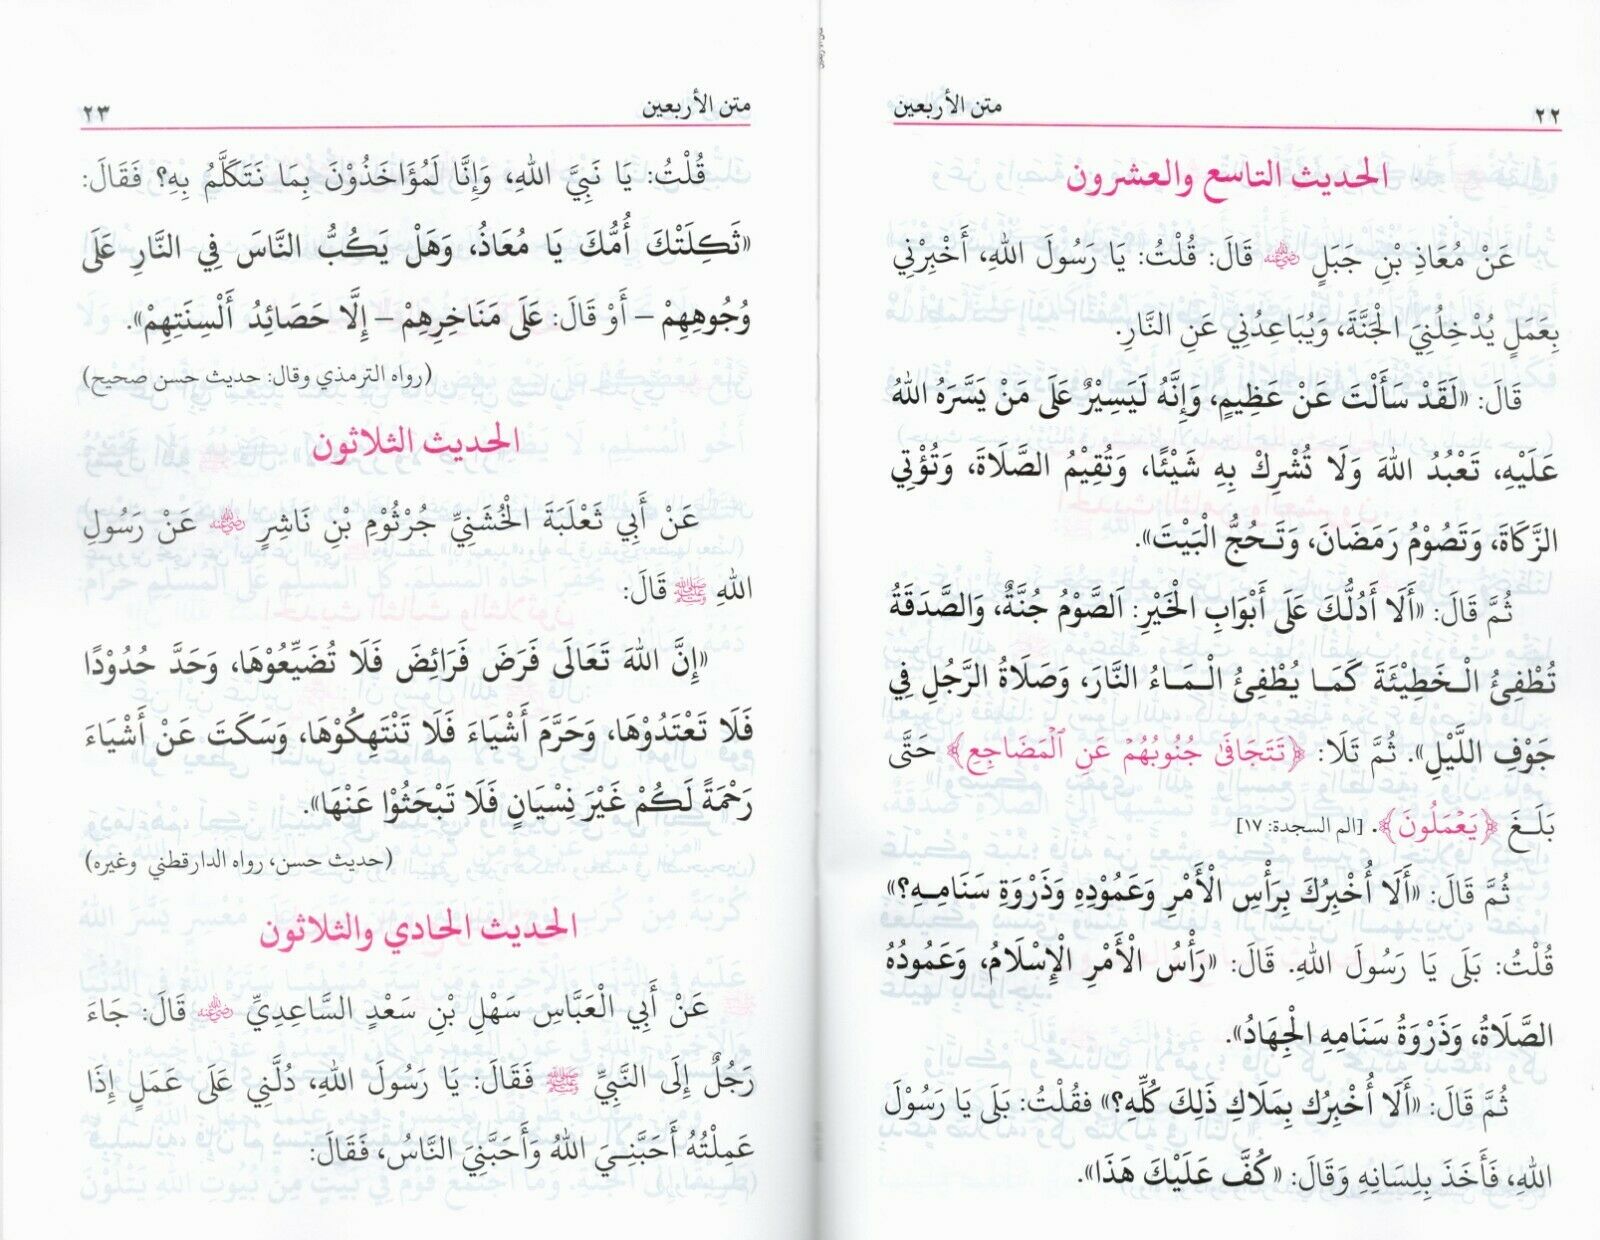 ٢٢ متن الأربعين
الحديث التاسع والعشرون
عَنْ مُعَاذِ بْنِ جَبَلٍ رضي الله عنه قَالَ: قُلْتُ: يَا رَسُولَ اللهِ، أَخْبِرْنِي
بِعَمَلٍ يُدْخِلُنِيَ الْجَنَّةَ، وَيُبَاعِدُنِي عَنِ النَّارِ.
قَالَ: «لَقَدْ سَأَلْتَ عَنْ عَظِيمٍ، وَإِنَّهُ لَيَسِيْرٌ عَلَى مَنْ يَسَّرَهُ اللهُ
عَلَيْهِ، تَعْبُدُ اللهَ وَلَا تُشْرِكْ بِهِ شَيْئًا، وَتُقِيْمُ الصَّلَاةَ، وَتُؤْتِي
الزَّكَاةَ، وَتَصُوْمُ رَمَضَانَ، وَتَحُجُّ الْبَيْتَ».
ثُمَّ قَالَ: «أَلَا أَدُلُّكَ عَلَى أَبْوَابِ الْخَيْرِ: اَلصَّوْمُ جُنَّةٌ، وَالصَّدَقَةُ
تُطْفِئُ الْخَطِيْئَةَ كَمَا يُطْفِئُ الْمَاءُ النَّارَ، وَصَلَاةُ الرَّجُلِ فِي
جَوْفِ اللَّيْلِ». ثُمَّ تَلَا: ﴿تَتَجَافَىٰ جُنُوبُهُمْ عَنِ ٱلْمَضَاجِعِ﴾ حَتَّى
بَلَغَ ﴿يَعْمَلُونَ﴾. [الم السجدة: ١٧]
ثُمَّ قَالَ: «أَلَا أُخْبِرُكَ بِرَأْسِ الْأَمْرِ وَعَمُوْدِهِ وَذَرْوَةِ سَنَامِهِ؟»
قُلْتُ: بَلَى يَا رَسُولَ اللهِ. قَالَ: «رَأْسُ الْأَمْرِ الْإِسْلَامُ، وَعَمُودُهُ
الصَّلَاةُ، وَذَرْوَةُ سَنَامِهِ الْجِهَادُ».
ثُمَّ قَالَ: «أَلَا أُخْبِرُك بِمَلَاكِ ذَلِكَ كُلِّهِ؟» فقُلْتُ: بَلَى يَا رَسُوْلَ
اللهِ، فَأَخَذَ بِلِسَانِهِ وَقَالَ: «كُفَّ عَلَيْكَ هَذَا».
متن الأربعين ٢٣
قُلْتُ: يَا نَبِيَّ اللهِ، وَإِنَّا لَمُؤَاخَذُوْنَ بِمَا نَتَكَلَّمُ بِهِ؟ فَقَالَ:
«ثَكِلَتْكَ أُمُّكَ يَا مُعَاذُ، وَهَلْ يَكُبُّ النَّاسَ فِي النَّارِ عَلَى
وُجُوهِهِمْ – أَوْ قَالَ: عَلَى مَنَاخِرِهِمْ – إِلَّا حَصَائِدُ أَلْسِنَتِهِمْ».
(رواه الترمذي وقال: حديث حسن صحيح)
الحديث الثلاثون
عَنْ أَبِي ثَعْلَبَةَ الْخُشَنِيِّ جُرْثُوْمِ بْنِ نَاشِرٍ رضي الله عنه عَنْ رَسُولِ
اللهِ ﷺ قَالَ:
«إِنَّ اللهَ تَعَالَى فَرَضَ فَرَائِضَ فَلَا تُضَيِّعُوْهَا، وَحَدَّ حُدُوْدًا
فَلَا تَعْتَدُوْهَا، وَحَرَّمَ أَشْيَاءَ فَلَا تَنْتَهِكُوْهَا، وَسَكَتَ عَنْ أَشْيَاءَ
رَحْمَةً لَكُمْ غَيْرَ نِسْيَانٍ فَلَا تَبْحَثُوْا عَنْهَا».
(حديث حسن، رواه الدارقطني وغيره)
الحديث الحادي والثلاثون
عَنْ أَبِي الْعَبَّاسِ سَهْلِ بْنِ سَعْدٍ السَّاعِدِيِّ رضي الله عنه قَالَ: جَاءَ
رَجُلٌ إِلَى النَّبِيِّ ﷺ فَقَالَ: يَا رَسُولَ اللهِ، دُلَّنِي عَلَى عَمَلٍ إِذَا
عَمِلْتُهُ أَحَبَّنِيَ اللهُ وَأَحَبَّنِيَ النَّاسُ، فَقَالَ: